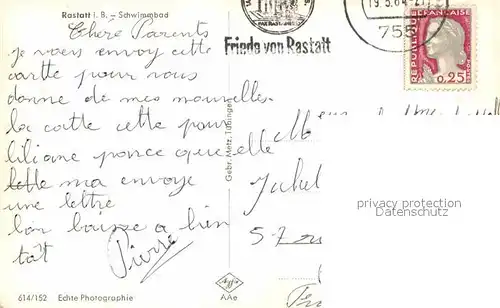 Rastatt i. B. – Schwimmbad
Chere Parents
je vous envoy cette
carte pour vous
donne de mes nouvelles.
la carte cette pour
liliane parce que elle
ma envoye
une lettre
bon baisse a bien
tôt
Pierre
614/152 Echte Photographie
Gebr. Metz, Tübingen
Agfa
AAe
Friede von Rastatt
19.5.64
755
REPUBLIQUE FRANÇAISE
0,25
privacy protection
Datenschutz